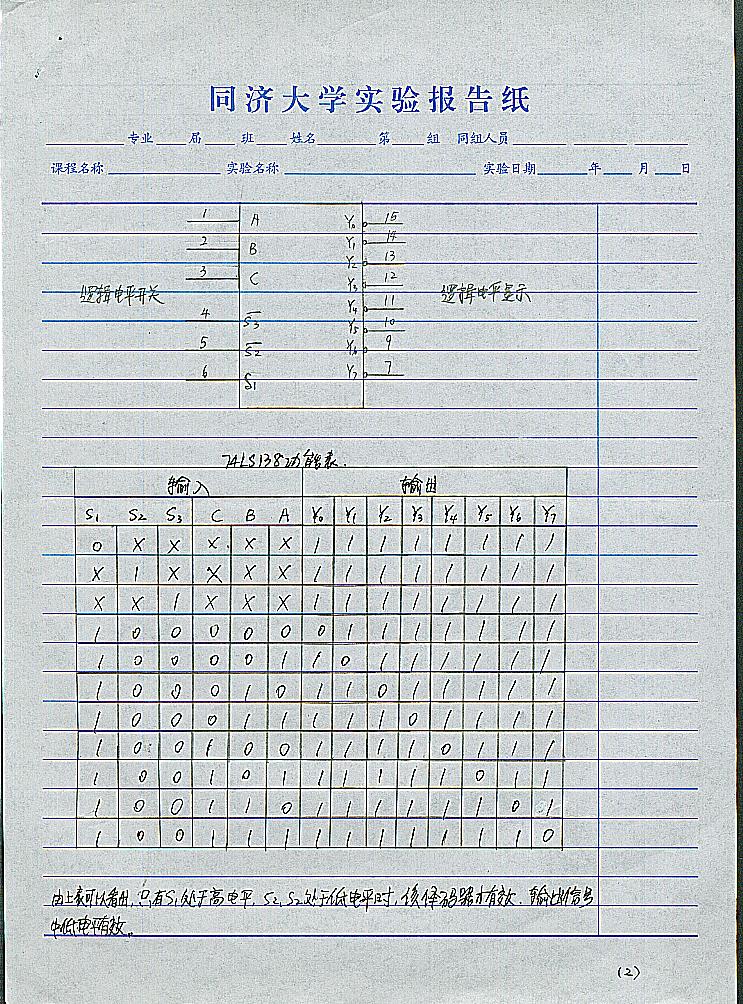 同济大学实验报告纸
专业 届 班 姓名 第 组 同组人员
课程名称 实验名称 实验日期 年 月 日
1 A Y₀ 15
Y₁ 14
2 B Y₂ 13
3 C Y₃ 12
逻辑电平开关 逻辑电平显示
Y₄ 11
4 S̅3̅ Y₅ 10
5 S̅2̅ Y₆ 9
6 S1 Y₇ 7
74LS138功能表.
输入 输出
S₁ S₂ S₃ C B A Y₀ Y₁ Y₂ Y₃ Y₄ Y₅ Y₆ Y₇
0 X X X X X 1 1 1 1 1 1 1 1
X 1 X X X X 1 1 1 1 1 1 1 1
X X 1 X X X 1 1 1 1 1 1 1 1
1 0 0 0 0 0 0 1 1 1 1 1 1 1
1 0 0 0 0 1 1 0 1 1 1 1 1 1
1 0 0 0 1 0 1 1 0 1 1 1 1 1
1 0 0 0 1 1 1 1 1 0 1 1 1 1
1 0 0 1 0 0 1 1 1 1 0 1 1 1
1 0 0 1 0 1 1 1 1 1 1 0 1 1
1 0 0 1 1 0 1 1 1 1 1 1 0 1
1 0 0 1 1 1 1 1 1 1 1 1 1 0
由上表可以看出,只有S₁处于高电平,S₂,S₂处于低电平时,该译码器才有效.输出信号
中低电平有效。
(2)